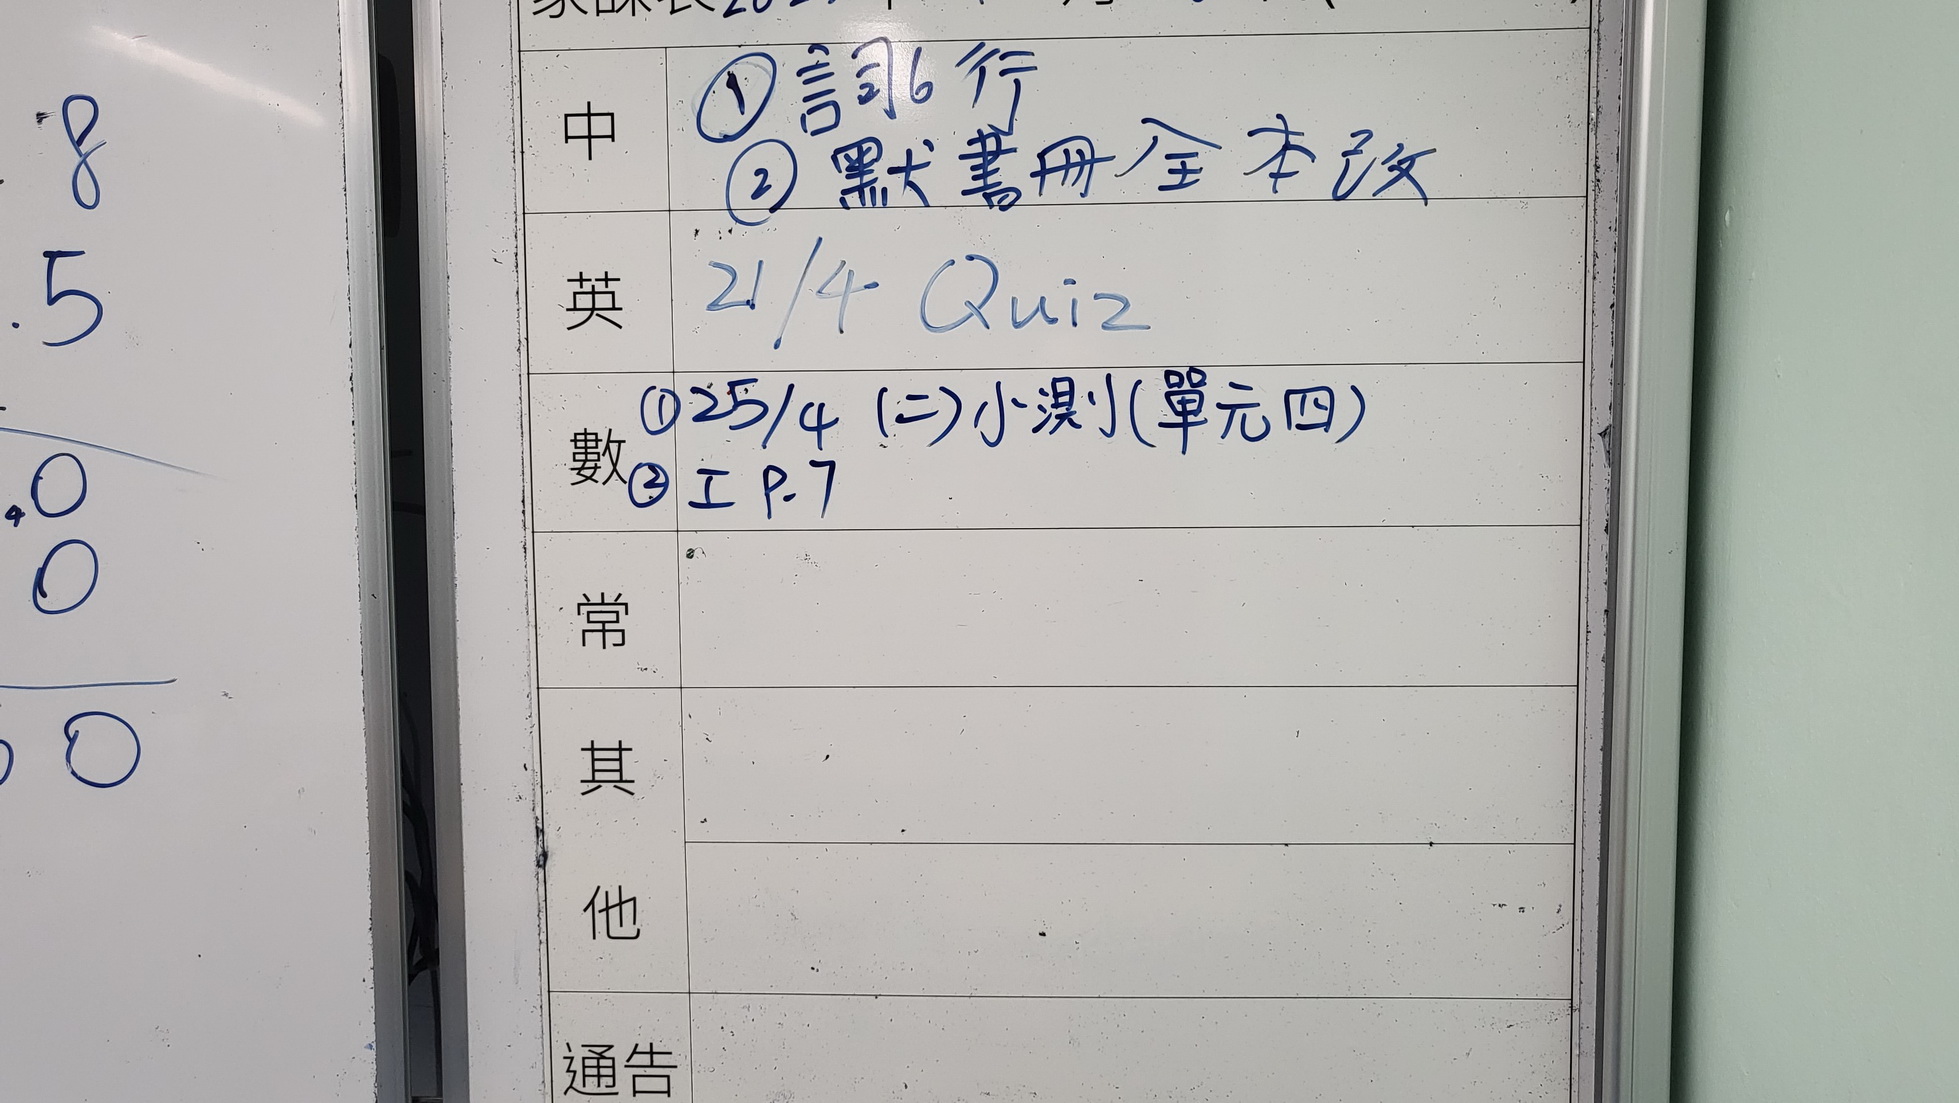 家課表202
中
① 詞6行
② 默書冊全本改
英
21/4 Quiz
數
① 25/4 (二)小測(單元四)
② 工 P.7
常
其
他
通告
8
.5
.0
0
0